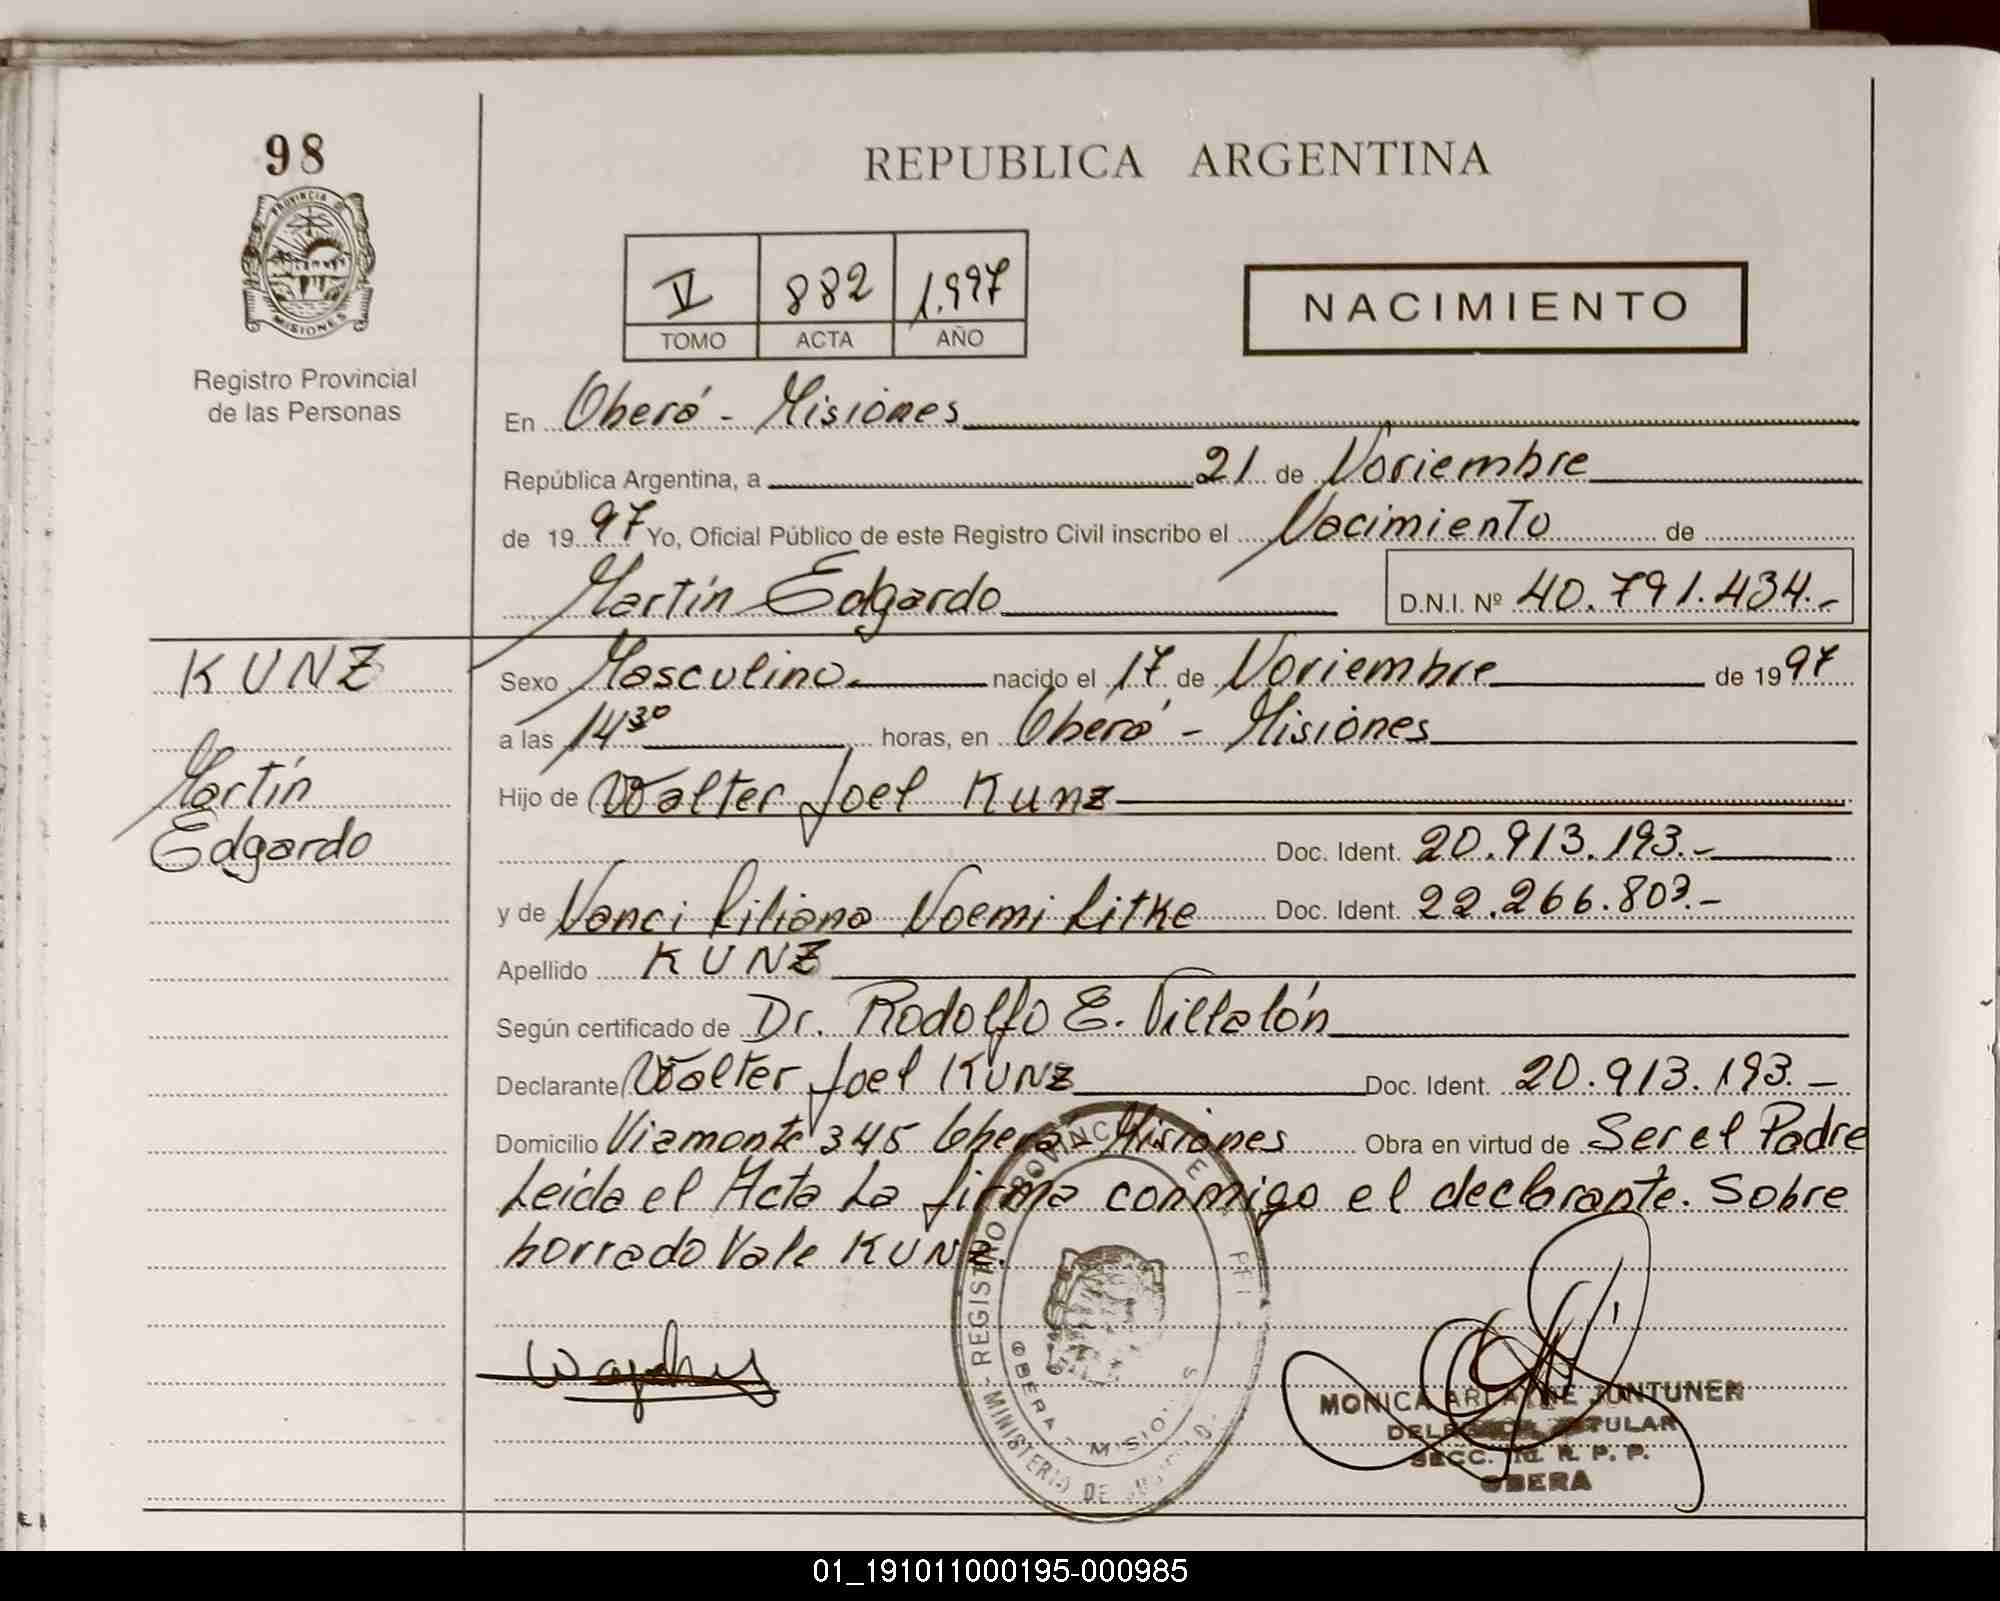 98
PROVINCIA D
MISIONES
Registro Provincial
de las Personas
REPUBLICA ARGENTINA
V 882 1.997
TOMO ACTA AÑO
NACIMIENTO
En Oberá - Misiones
República Argentina, a 21 de Noviembre
de 1997 Yo, Oficial Público de este Registro Civil inscribo el Nacimiento de
Martín Edgardo D.N.I. Nº 40.791.434.-
KUNZ
Martín
Edgardo
Sexo Masculino. nacido el 17 de Noviembre de 1997
a las 14³⁰ horas, en Oberá - Misiones
Hijo de Walter Joel Kunz
Doc. Ident. 20.913.193.-
y de Nanci Liliana Noemi Litke Doc. Ident. 22.266.803.-
Apellido KUNZ
Según certificado de Dr. Rodolfo E. Villalón
Declarante Walter Joel KUNZ Doc. Ident. 20.913.193.-
Domicilio Viamonte 345 Oberá - Misiones Obra en virtud de Ser el Padre
Leída el Acta La firma conmigo el declarante. Sobre
borrado Vale KUNZ.
REGISTRO PROVINC
OBERA - MISIO
MINISTERIO DE
MONICA JUNTUNEN
TULAR
SECC. R. P. P.
OBERA
01_191011000195-000985